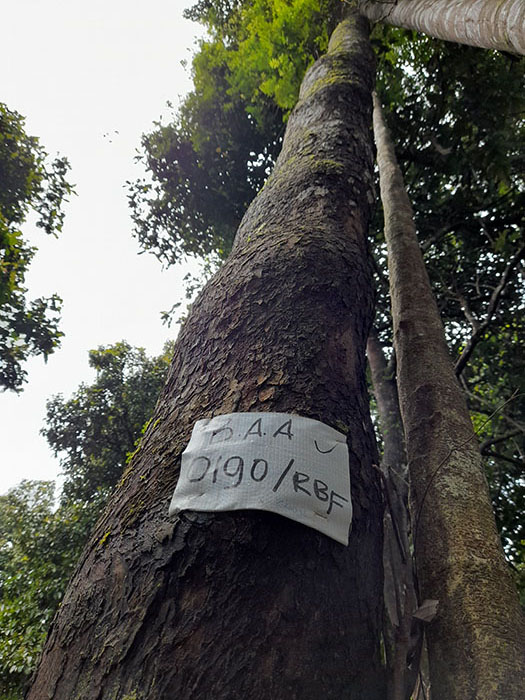 B.A.A
0190/RBF